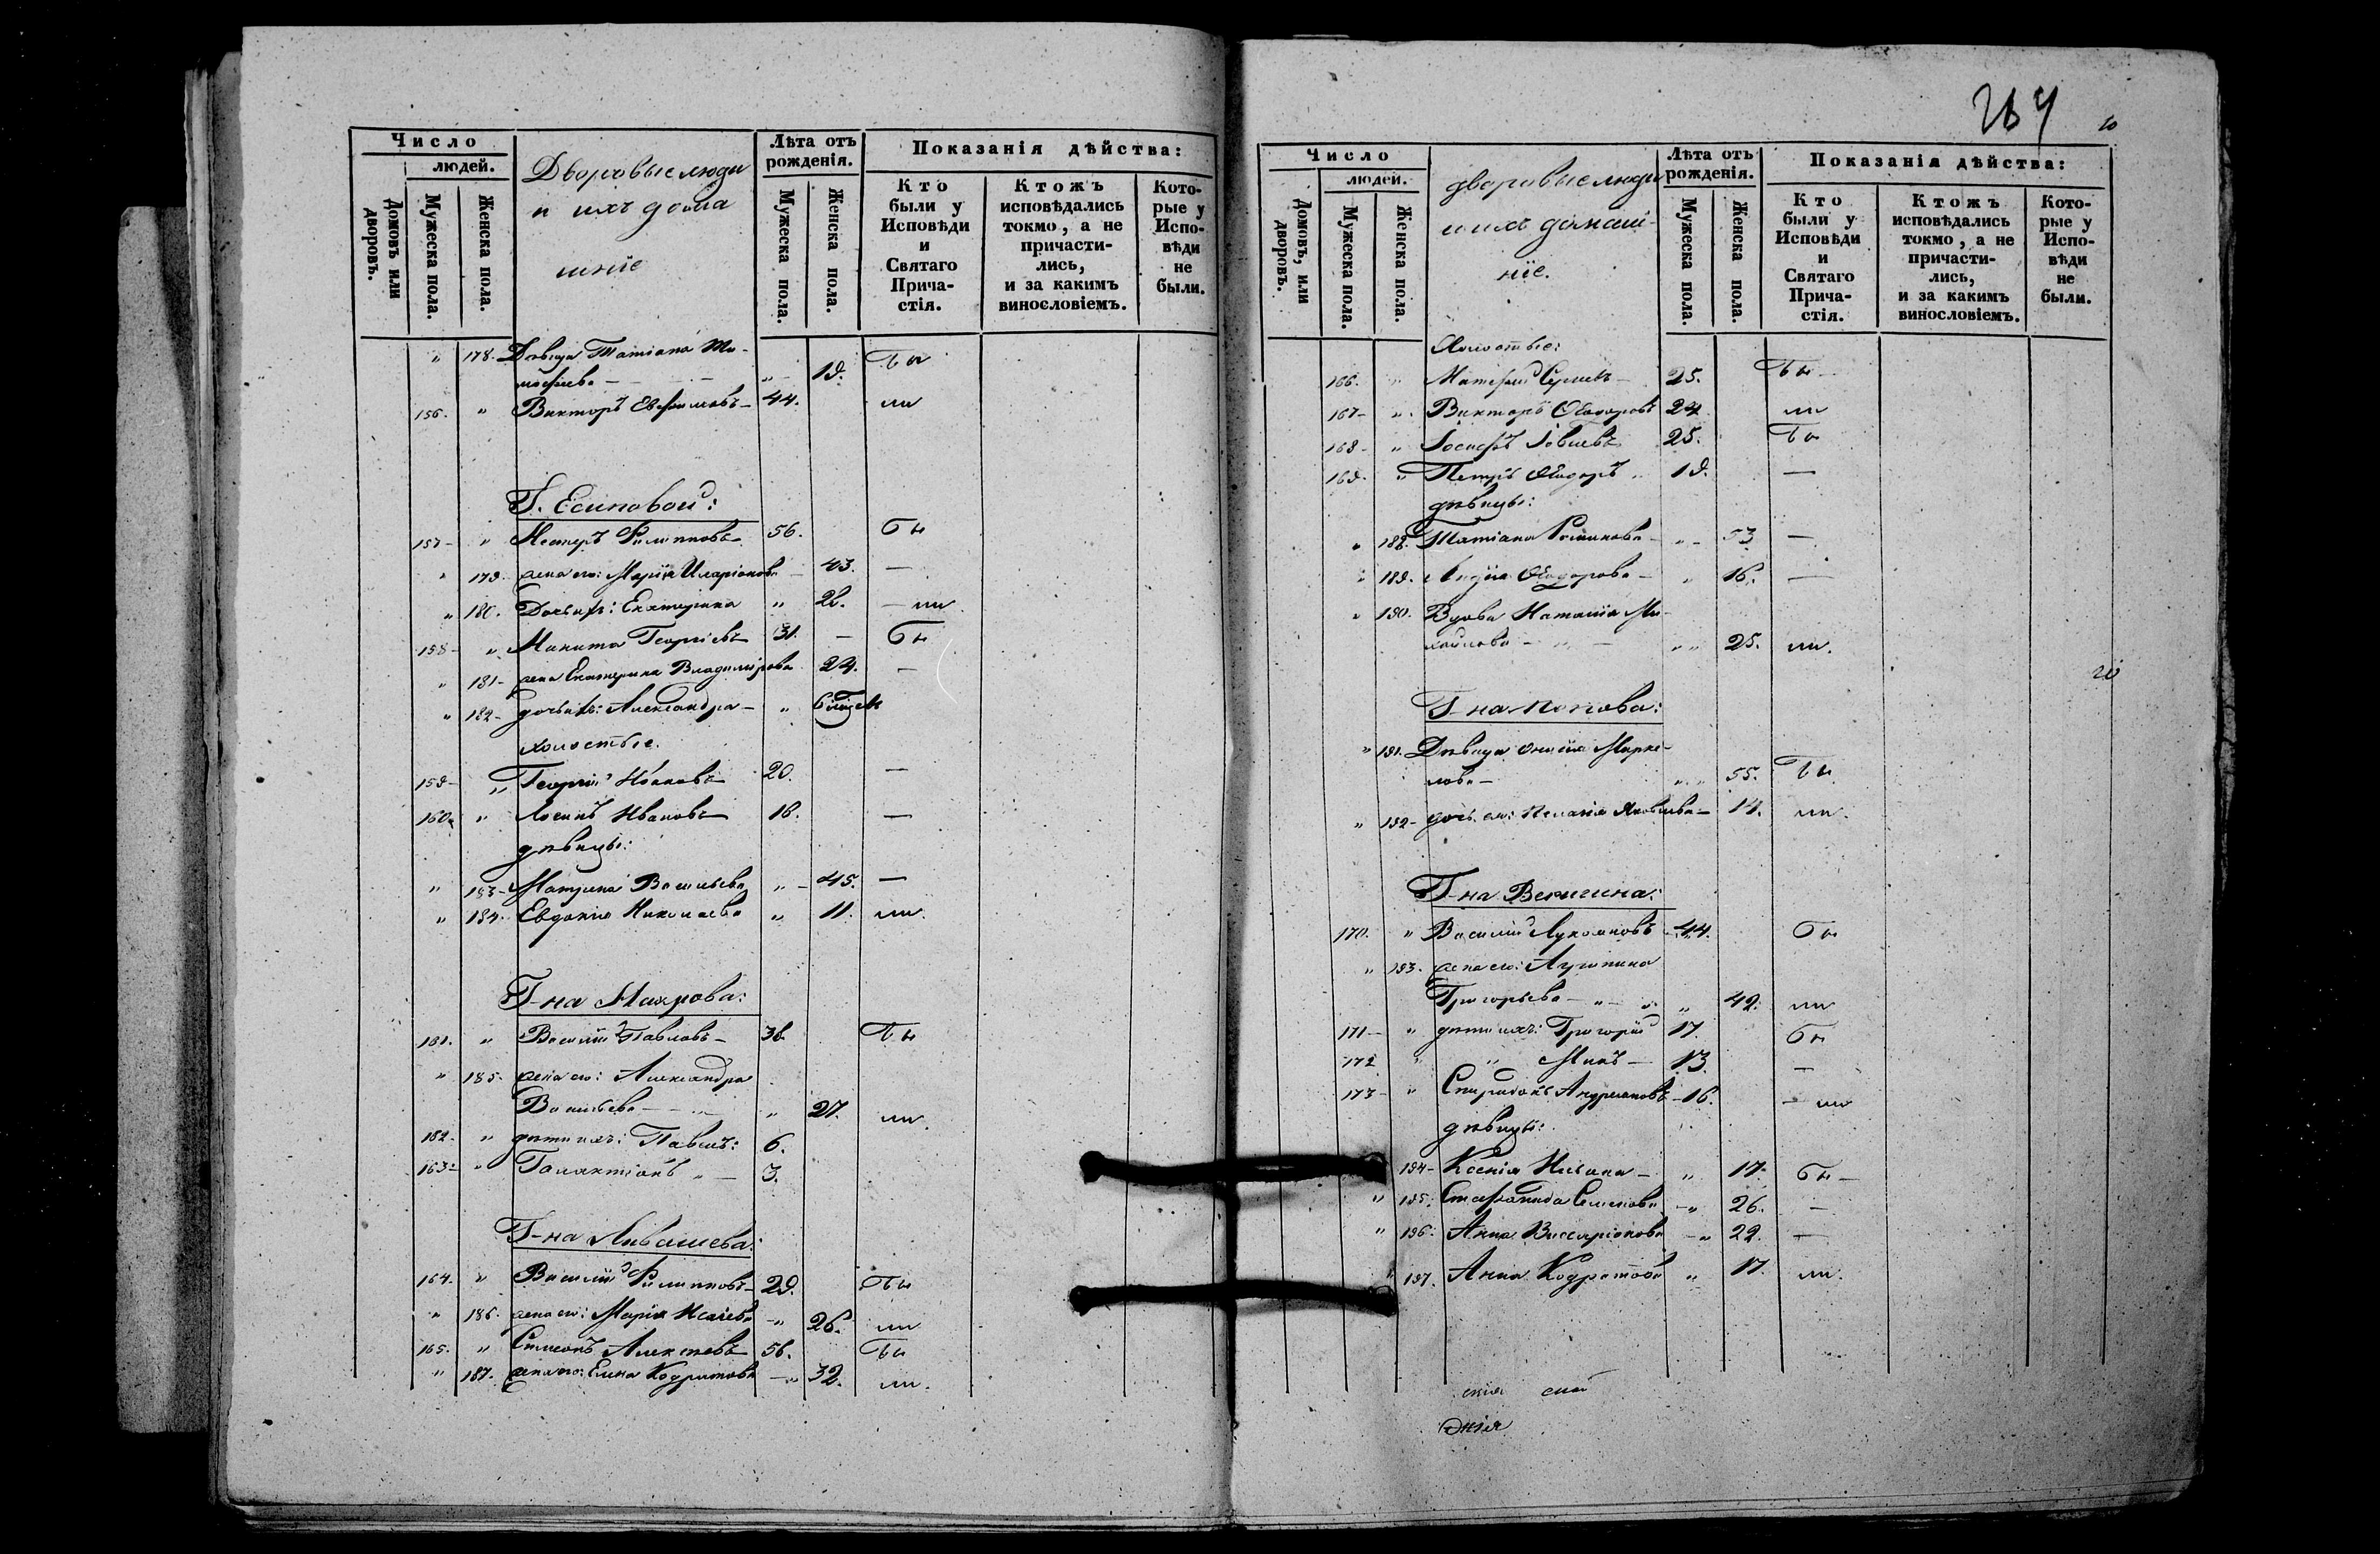 Число
людей.
Домовъ или дворовъ.
Мужеска пола.
Женска пола.
Дворовые люди
и ихъ дома
шніе
Лѣта отъ рожденія.
Мужеска пола.
Женска пола.
Показанія дѣйства:
Кто были у Исповѣди и Святаго Прича-стія.
Ктожъ исповѣдались токмо, а не причасти-лись, и за какимъ винословіемъ.
Кото-рые у Испо-вѣди не были.
" 178. Дѣвица Татіана Ти-
мофіева — " 19. бы
156. " Викторъ Евфимовъ — 44. ли
Г. Есиповой:
157 — " Несторъ Филипповъ 56. бы
" 179. жена его: Марія Иларіонова — 43. —
" 180. Дочь ихъ: Екатерина " 2 . — ли
158 — " Никита Георгіевъ 31. — бы
" 181 — жена Екатерина Владимірова 24. —
" 182 — дочь ихъ: Александра — "
холостые.
159 — " Георгій Ивановъ 20. —
160. " Логинъ Ивановъ 18. —
дѣвицы:
" 183 — Матрона Васильева " — 45. —
" 184. Евдокія Николаева " 11. ли.
Г-на Махрова:
161. " Василій Павловъ — 38. бы
" 185. жена его: Александра
Васильева — " 27. ли.
162. " дѣти ихъ: Павелъ: 6.
163 — " Галактіонъ " — 3.
Г-на Ливашева:
164. " Василій Филипповъ — 29. бы
" 186. жена его: Марія Исаіева — " 26. ли
165. " Симеонъ Алексѣевъ 56. бы
" 187. жена его: Елена Кодратова — " 32. ли.
10
Число
людей.
Домовъ, или дворовъ.
Мужеска пола.
Женска пола.
дворовые люди
и ихъ домаш-
ніе.
Лѣта отъ рожденія.
Мужеска пола.
Женска пола.
Показанія дѣйства:
Кто были у Исповѣди и Святаго Прича-стія.
Ктожъ исповѣдались токмо, а не причасти-лись, и за какимъ винословіемъ.
Кото-рые у Испо-вѣди не были.
Холостые:
166. " — 25. бы —
167 — " Викторъ Ѳеодоровъ 24 ли
168 — " Іосифъ Іовлевъ 25. бы
169. " Петръ Ѳеодоръ " 19. —
дѣвицы:
" 188. Татіана — " — 53 —
" 189. Лидія Ѳеодорова — " 16. —
" 190. Вдова Наталія Ми-
хайлова — " — " " 25. ли.
Г-на Попова:
" 191. Дѣвица Марке-
лова — " " 55. бы.
" 192 — дочь ея: Пелагія Яковлева — 14. ли.
Г-на Веригина:
170. " Василій Лукіяновъ — 44. бы
" 193. жена его: Агрипина
Григорьева — " — " " 42. ли
171 — " дѣти ихъ: Григорій 17. бы
172 " " — 13. —
173 — " Спиридонъ Андреяновъ — 16. — ли
дѣвицы:
194 — Ксенія — " 17. бы —
" 195. Стефанида Семенова — " 26. —
" 196. Анна Висаріонова — " 22. —
" 197. Анна Кодратова " 17. ли.